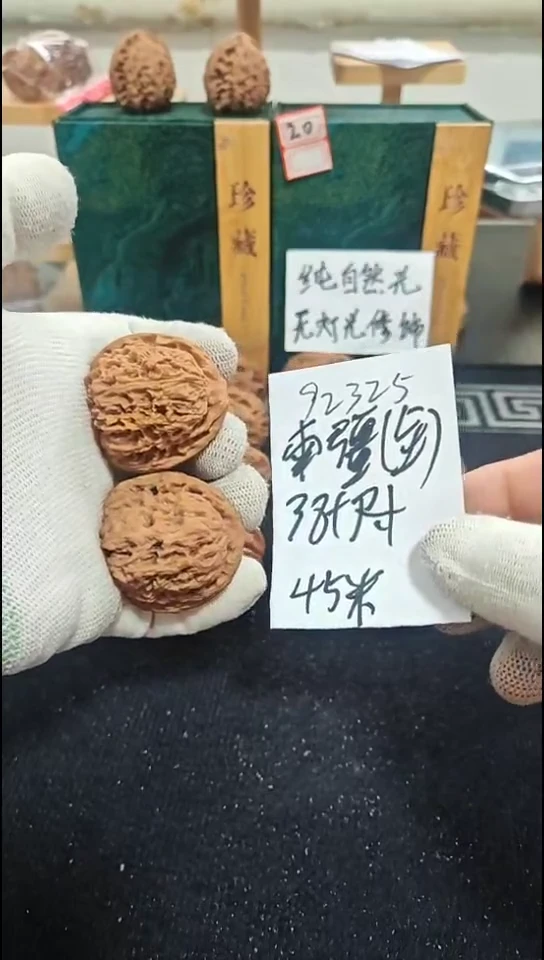 珍藏
20
珍藏
纯自然光
无灯光修饰
92325
南疆(石)
38+尺寸
45米